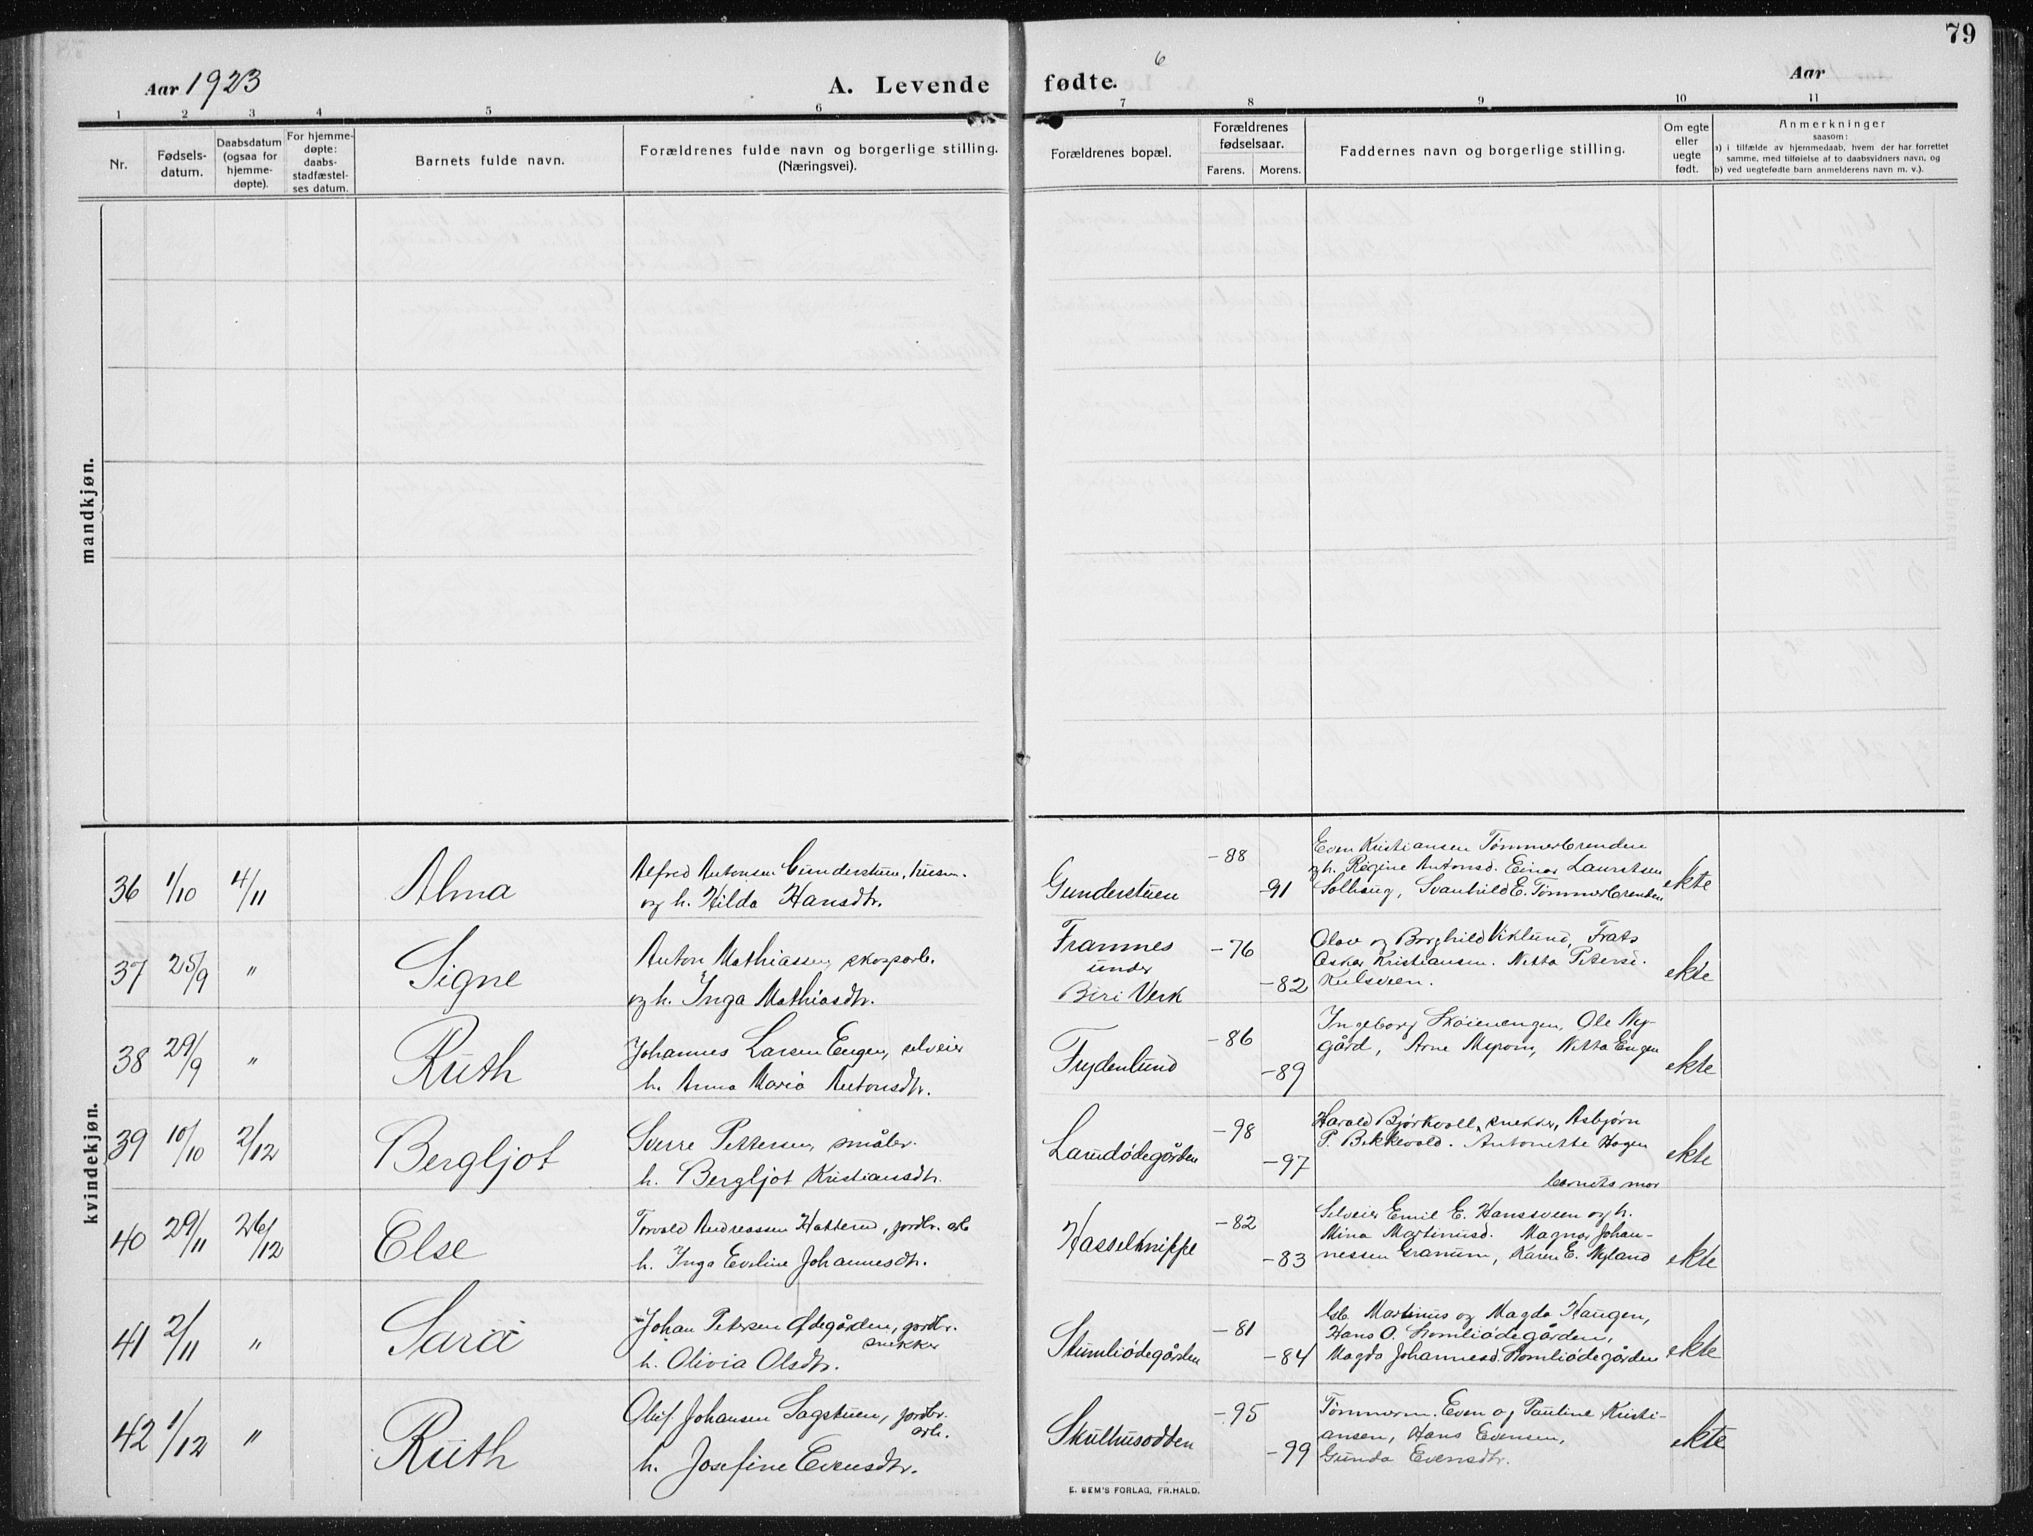 79
Aar 1923
A. Levende fødte.
6
Aar
1 2 3 4 5 6 7 8 9 10 11
Nr.
Fødsels-
datum.
Daabsdatum
(ogsaa for
hjemme-
døpte).
For hjemme-
døpte:
daabs-
stadfæstel-
ses datum.
Barnets fulde navn.
Forældrenes fulde navn og borgerlige stilling.
(Næringsvei).
Forældrenes bopæl.
Forældrenes
fødselsaar.
Farens. Morens.
Faddernes navn og borgerlige stilling.
Om egte
eller
uegte
født.
Anmerkninger
saasom:
a) i tilfælde av hjemmedaab, hvem der har forrettet
samme, med tilføielse af to daabsvidners navn, og
b) ved uegtefødte barn anmelderens navn m. v.).
mandkjøn.
kvindekjøn.
36 1/10 4/11 Alma
Alfred Antonsen Gunderstuen, husm.
og h. Hilda Hansdtr.
Gunderstuen
-88
-91
Even Kristiansen Tømmerbrenden
og h. Regine Antonsd. Einar Lauretsen
Solhaug, Svanhild E. Tømmerbrenden
ekte
37 25/9 " Signe
Anton Mathiassen, skogsarb.
og h. Inga Mathiasdtr.
Framnes
under
Biri Verk
-76
-82
Olav og Borghild Viklund,
Oskar Kristiansen. Netta Peterse.
ekte
38 29/9 " Ruth
Johannes Larsen Engen, selveier
h. Anna Maria Antonsdtr.
Frydenlund
-86
-89
Ingeborg Skøienengen, Ole Ny-
gård, Arne Myrom, Netta Engen
ekte
39 10/10 2/12 Bergljot
Sverre Pettersen, måler.
h. Bergljot Kristiansdtr.
Landødegården
-98
-97
Harald Bjørkvoll, snekker, Asbjørn
P. Bekkevold. Antonette Hagen
barnets mor
ekte
40 29/11 26/12 Else
Torvald Andreassen Hatterud, jordbr. arb
h. Inga Eveline Johannesdtr.
Hasselknippe
-82
-83
Selveier Emil E. Hansveen og h.
Mina Martinusd. Magnor Johan-
nessen Granum, Karen E. Nyland
ekte
41 2/11 " Sara
Johan Petersen Ødegården, jordbr.
snekker
h. Olivia Olsdtr.
Stumliødegården
-81
-84
Gb. Martinus og Magda Haugen,
Hans O. Stomliødegården,
Magda Johannesd. Stomliødegården
ekte
42 1/12 " Ruth
Oluf Johansen Sagstuen, jordbr.
arb.
h. Josefine Evensdtr.
Skulhusodden
-95
-99
Tømmerm. Even og Pauline Kristi-
ansen, Hans Evensen,
Gunda Evensdtr.
ekte
E. SEM'S FORLAG, FR.HALD.